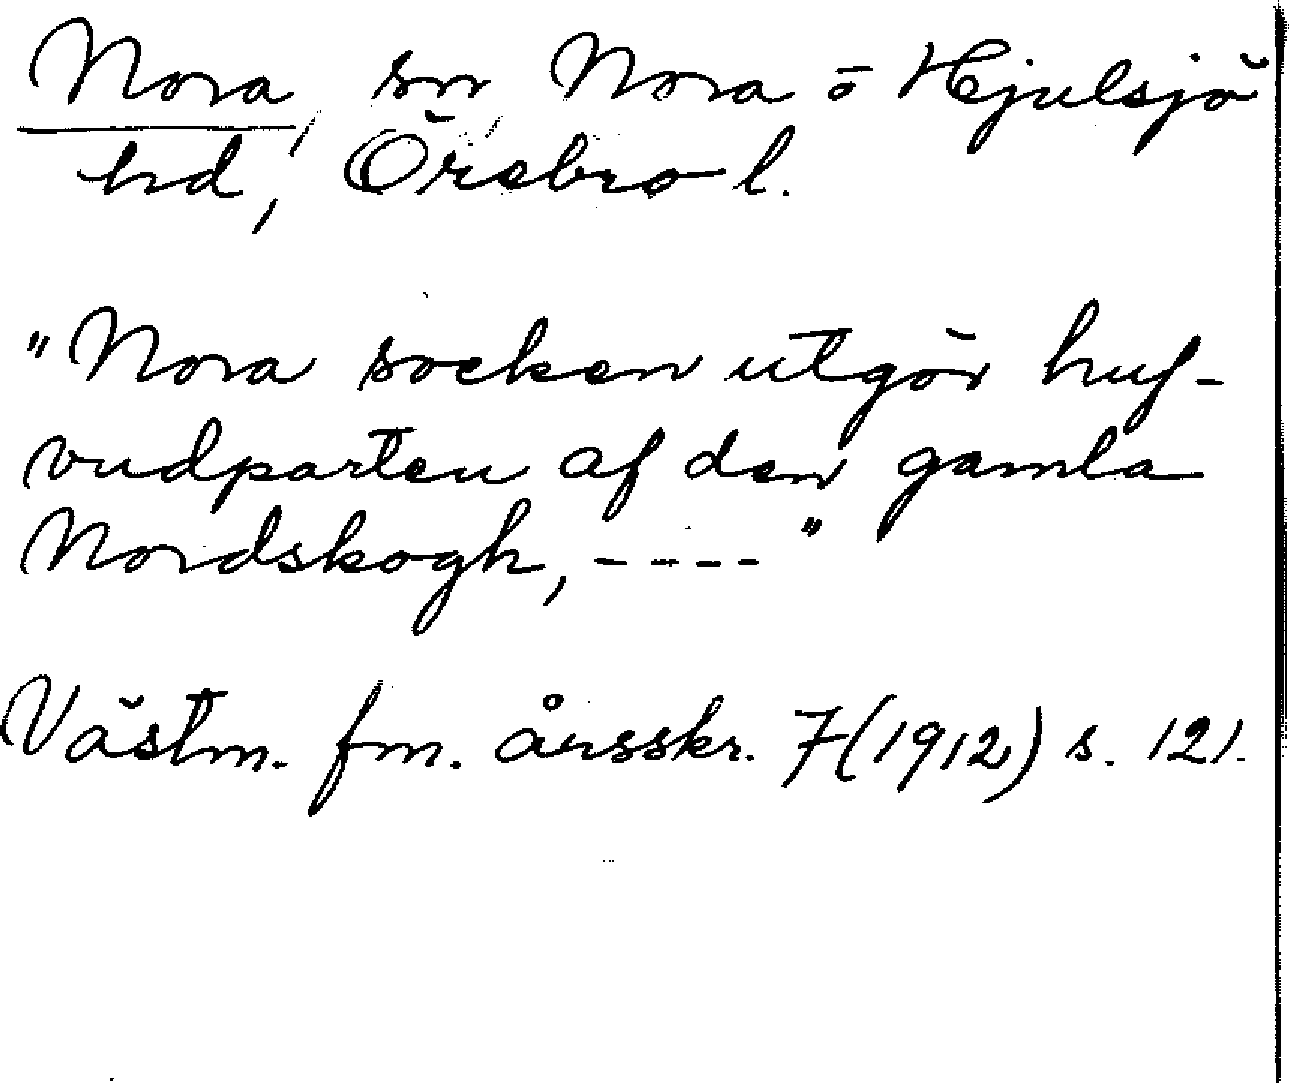 Nora, sn, Nora o Hjulsjö
hd, Örebro l.
"Nora socken utgör huf-
vudparten af den gamla
Nordskogh, ----"
Västm. fm. årsskr. 7(1912) s. 121.